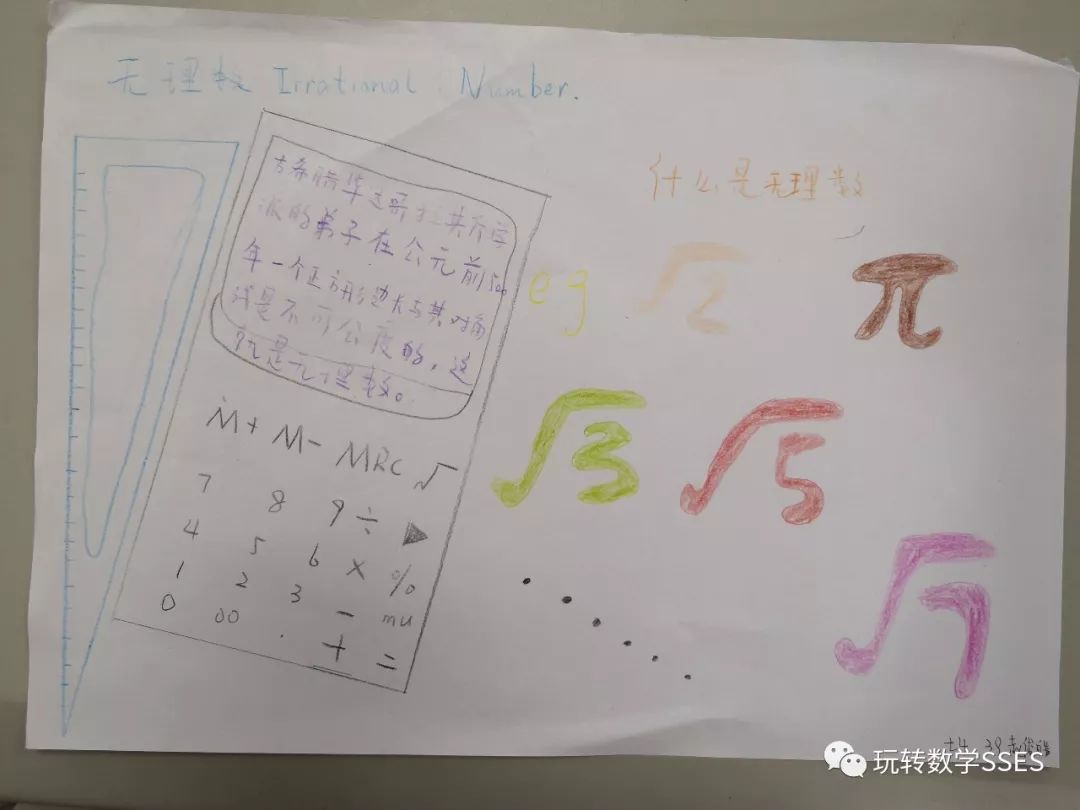 无理数 Irrational Number.
什么是无理数
古希腊毕达哥拉其斯学
派的弟子在公元前500
年一个正方形边长与其对角
线是不可公度的,这
就是无理数。
eg √2 π
√3 √5
√7
M+ M- MRC √
7 8 9 ÷ ▶
4 5 6 × %
1 2 3 - mu
0 00 . + =
玩转数学SSES